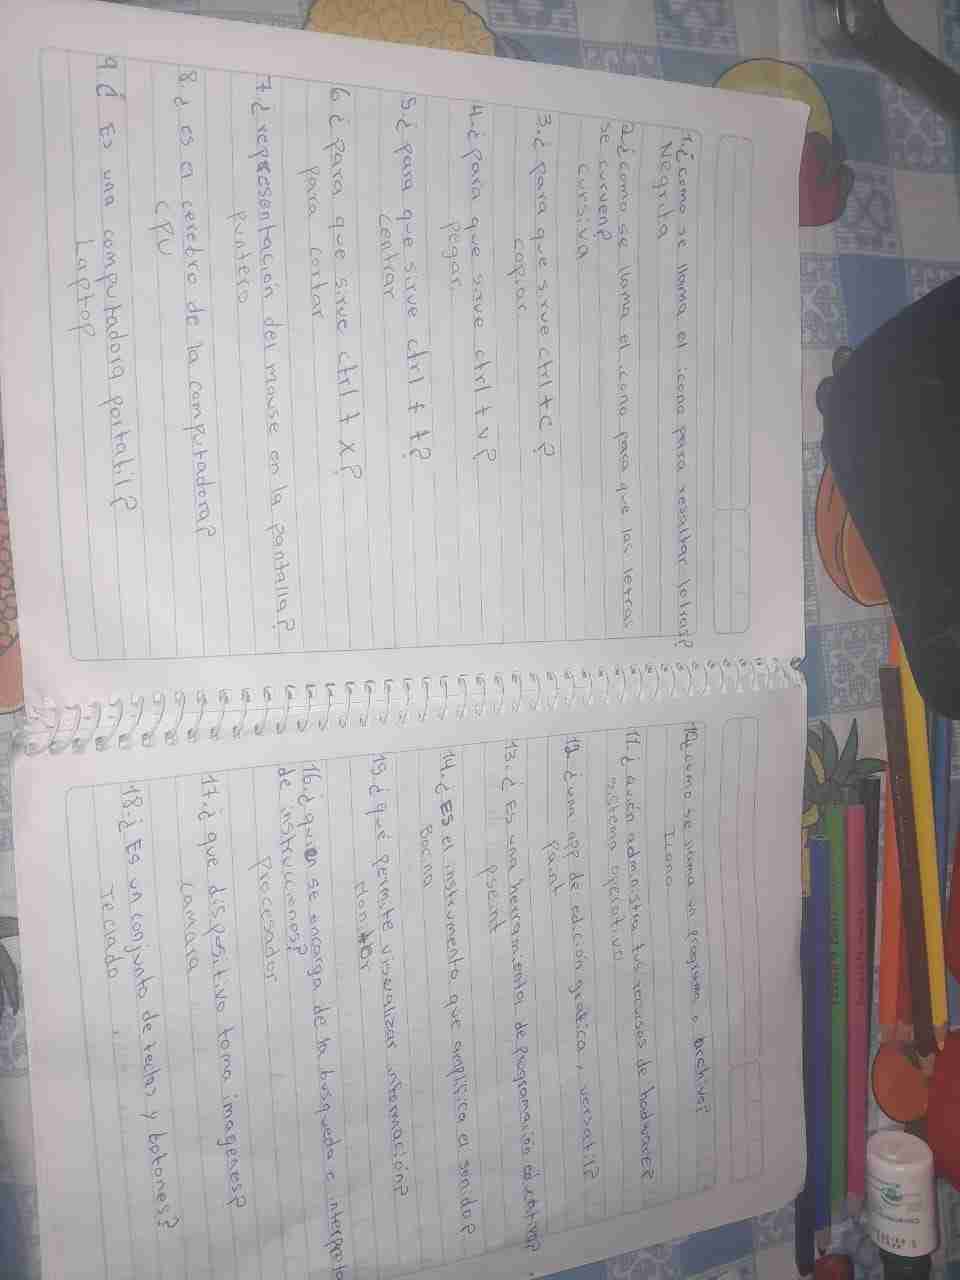 1¿como se llama el icono para resaltar letras?
Negrita
2¿como se llama el icono para que las letras
se curven?
cursiva
3.¿para que sirve ctrl+c?
copiar
4.¿para que sirve ctrl+v?
pegar
5¿para que sirve ctrl+t?
centrar
6¿para que sirve ctrl+x?
para cortar
7¿representación del mouse en la pantalla?
puntero
8.¿Es el cerebro de la computadora?
CPU
9¿Es una computadora portatil?
Laptop
10¿como se llama un programa o archivo?
Icono
11.¿quién administra tus recursos de hadware?
sistema operativo
12.¿una app de edición grafica, versatil?
paint
13.¿Es una herramienta de programación educativa?
pseint
14.¿Es el instrumento que amplifica el sonido?
Bocina
15¿qué permite visualizar información?
Monitor
16.¿quién se encarga de la busqueda e interpreta
de instrucciones?
procesador
17.¿que dispositivo toma imagenes?
camara
18.¿Es un conjunto de teclas y botones?
Teclado